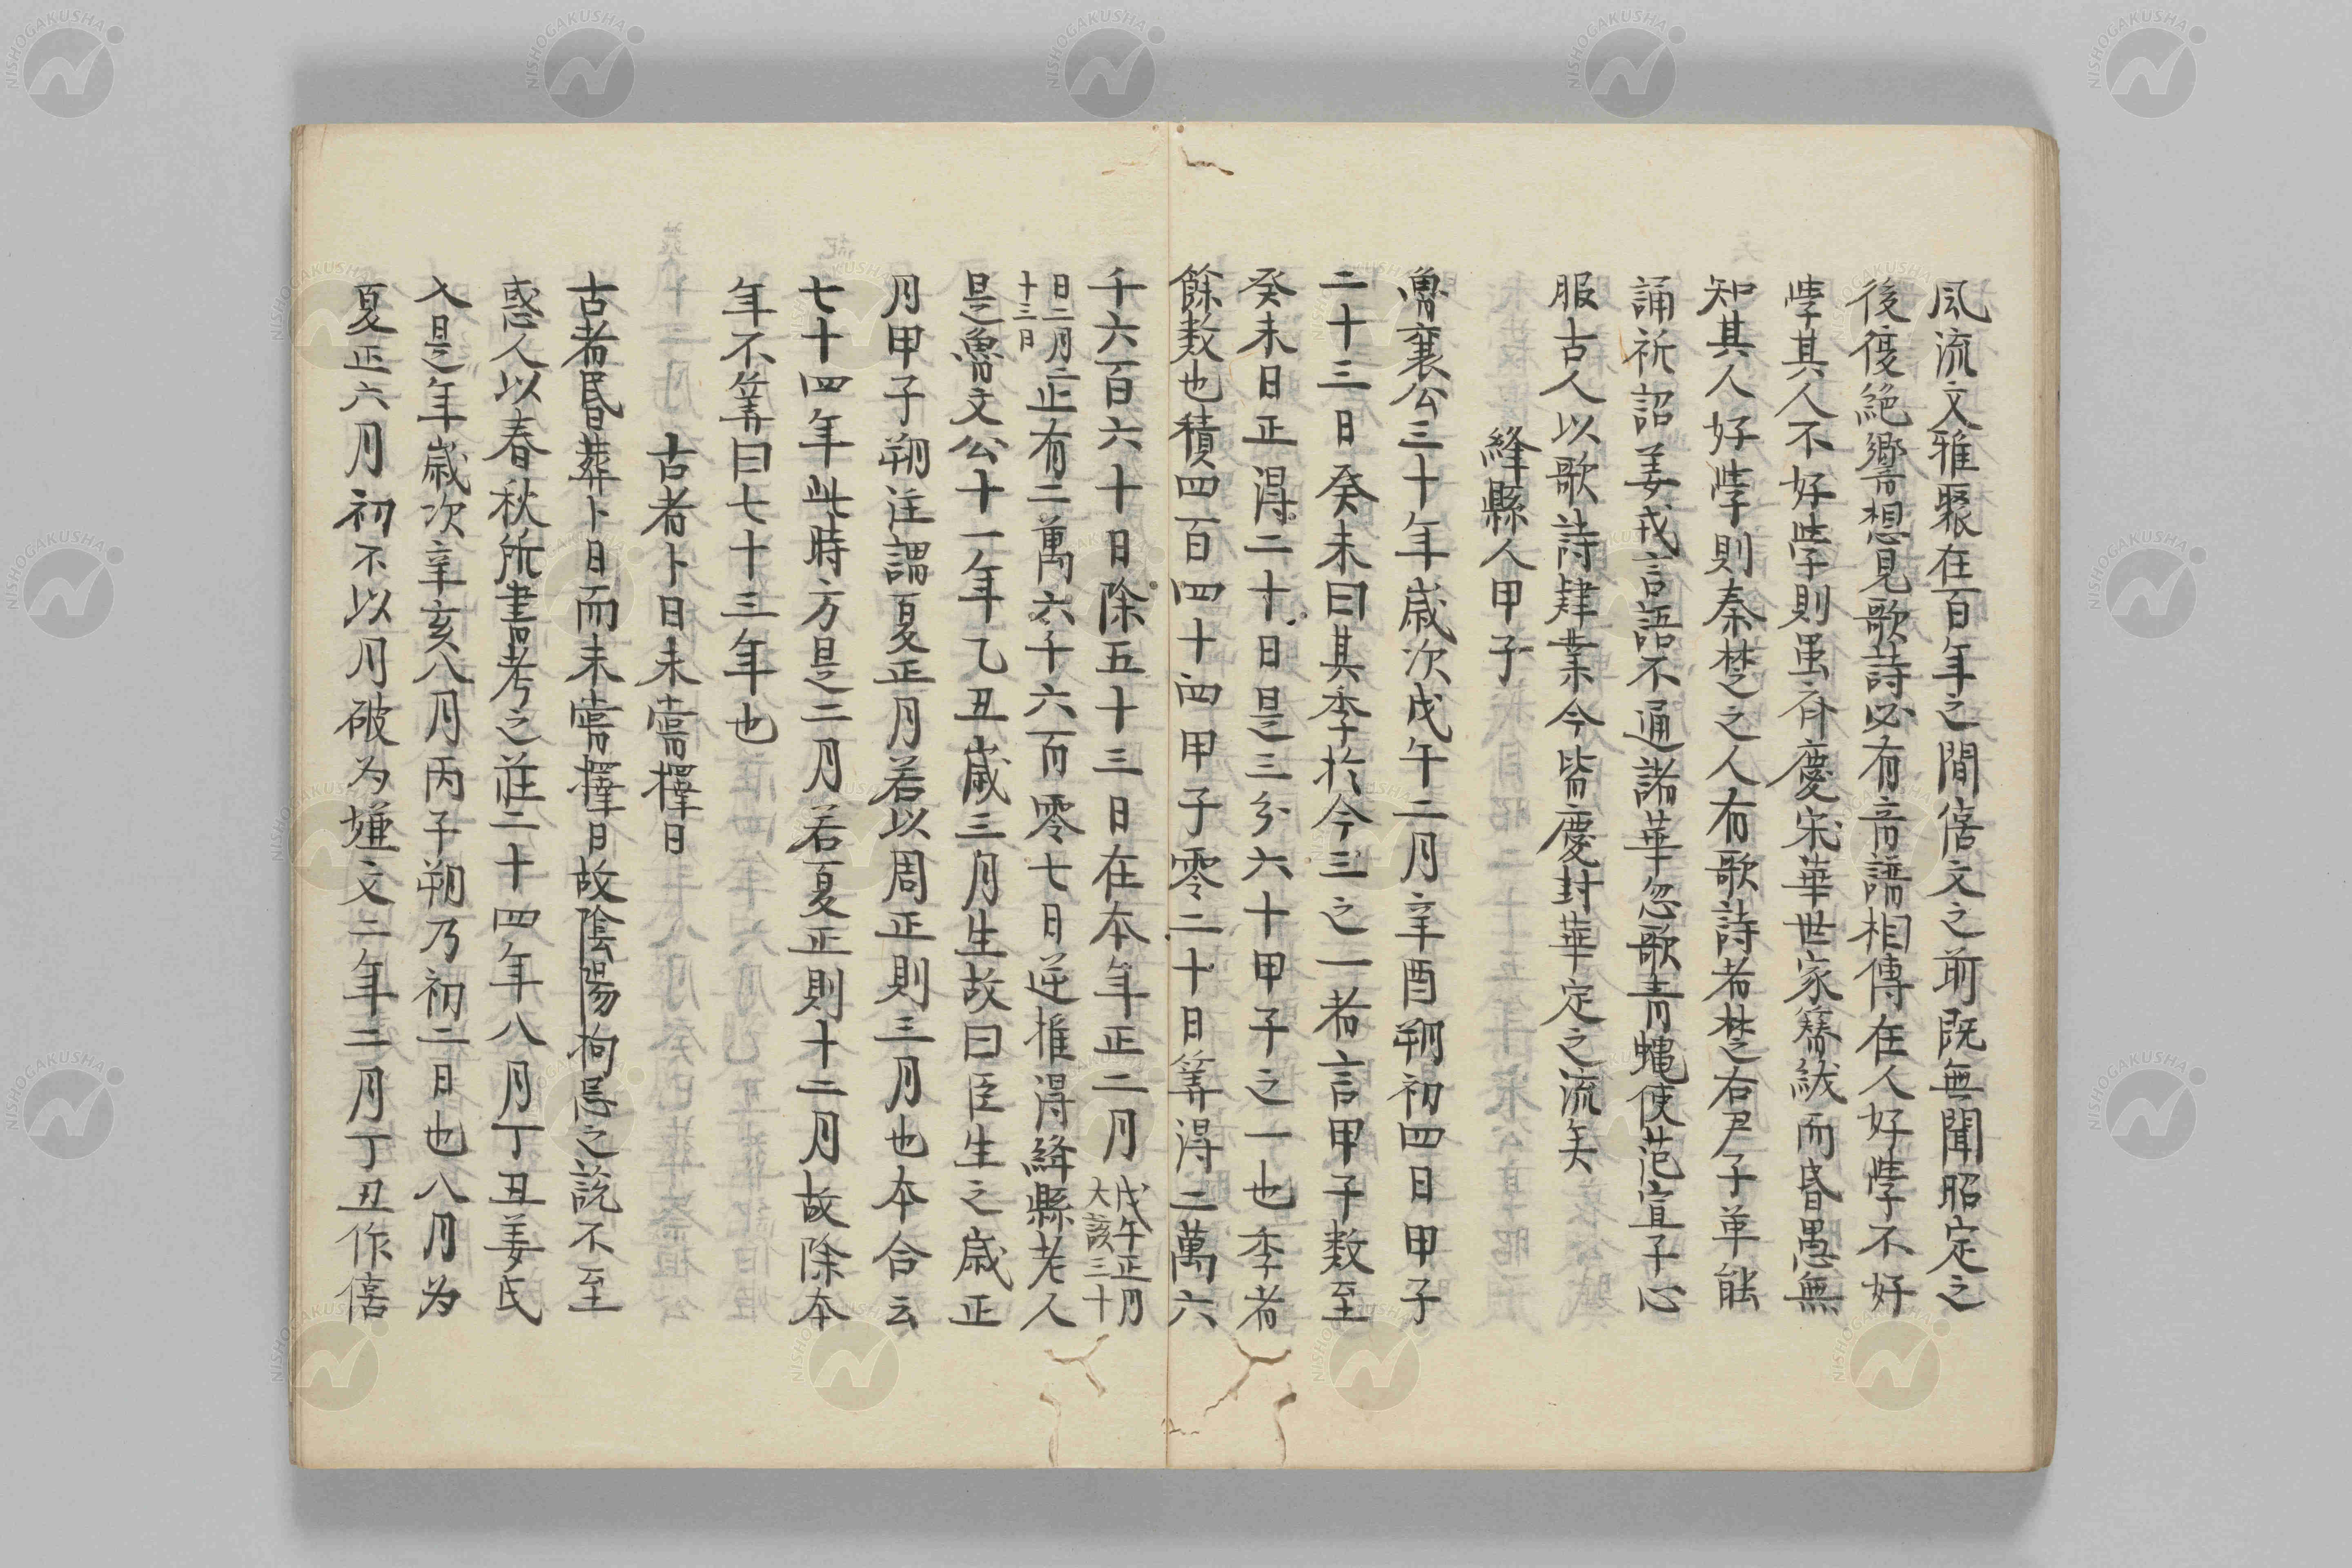 風流文雅聚在百年之間僖文之前既無聞昭定之
後復絕響想見歌詩必有音譜相傳在人好學不好
學其人不好學則虽齐慶宋華世家簪紱而昏愚無
知其人好學則秦楚之人有歌詩者楚右尹子革能
誦祈詔姜戎言語不通諸華忽歌青蠅使范宣子心
服古人以歌詩肄業今皆慶封華定之流矣
絳縣人甲子
魯襄公三十年歲次戊午二月辛酉朔初四日甲子
二十三日癸未曰其季於今三之一者言甲子数至
癸未日正得二十日是三分六十甲子之一也季者
餘数也積四百四十四甲子零二十日筭得二萬六
千六百六十日除五十三日在本年正二月戊午正月大該三十
日二月二十三日正有二萬六千六百零七日逆推得絳縣老人
是魯文公十一年乙丑歲三月生故曰臣生之歲正
月甲子朔注謂夏正月若以周正則三月也本合云
七十四年此時方是二月若夏正則十二月故除本
年不筭曰七十三年也
古者卜日未嘗擇日
古者昏葬卜日而未嘗擇日故陰陽拘忌之說不至
惑人以春秋所書考之莊二十四年八月丁丑姜氏
入是年歲次辛亥八月丙子朔乃初二日也八月为
夏正六月初不以月破为嫌文二年二月丁丑作僖
NISHOGAKUSHA